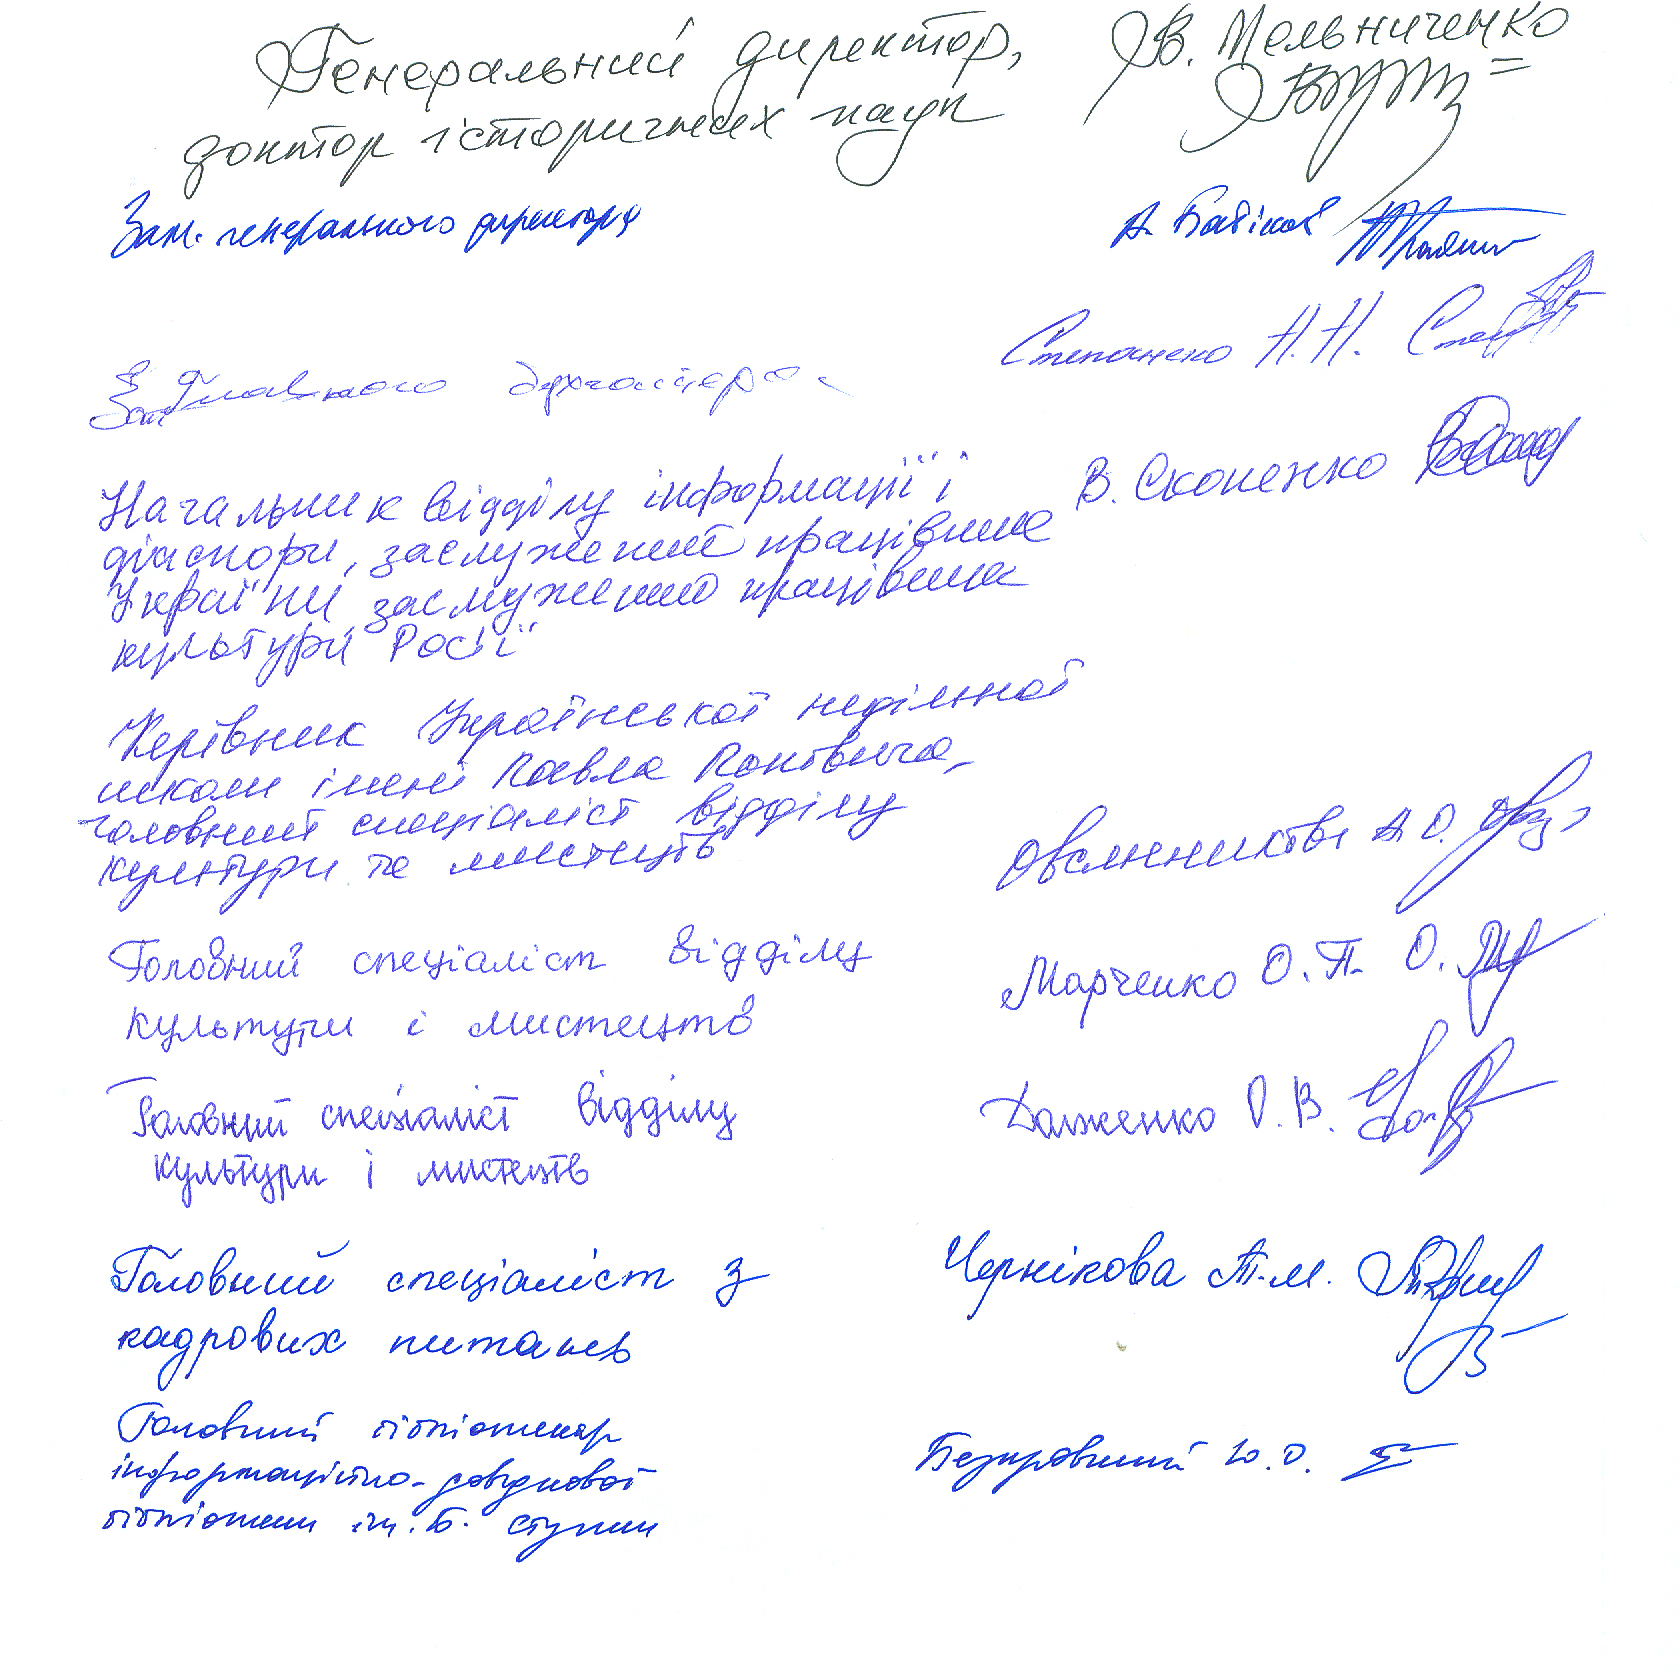 Генеральний директор, В. Мельниченко
доктор історичних наук
Зам. генерального директора А. Бабіков
Степаненко Н.Н.
Зам Главного бухгалтера
Начальник відділу інформації і В. Скопенко
діаспори, заслужений працівник
України, заслужений працівник
культури Росії
Керівник Української недільної
школи імені Павла Поповича,
головний спеціаліст відділу
культури та мистецтв Овсянникова А О.
Головний спеціаліст відділу Марченко О. П.
культури і мистецтв
Головний спеціаліст відділу Долженко О. В.
культури і мистецтв
Головний спеціаліст з Чернікова Т.М.
кадрових питань
Головний бібліотекар
інформаційно-довідкової Ю.О.
бібліотеки ім. Б.